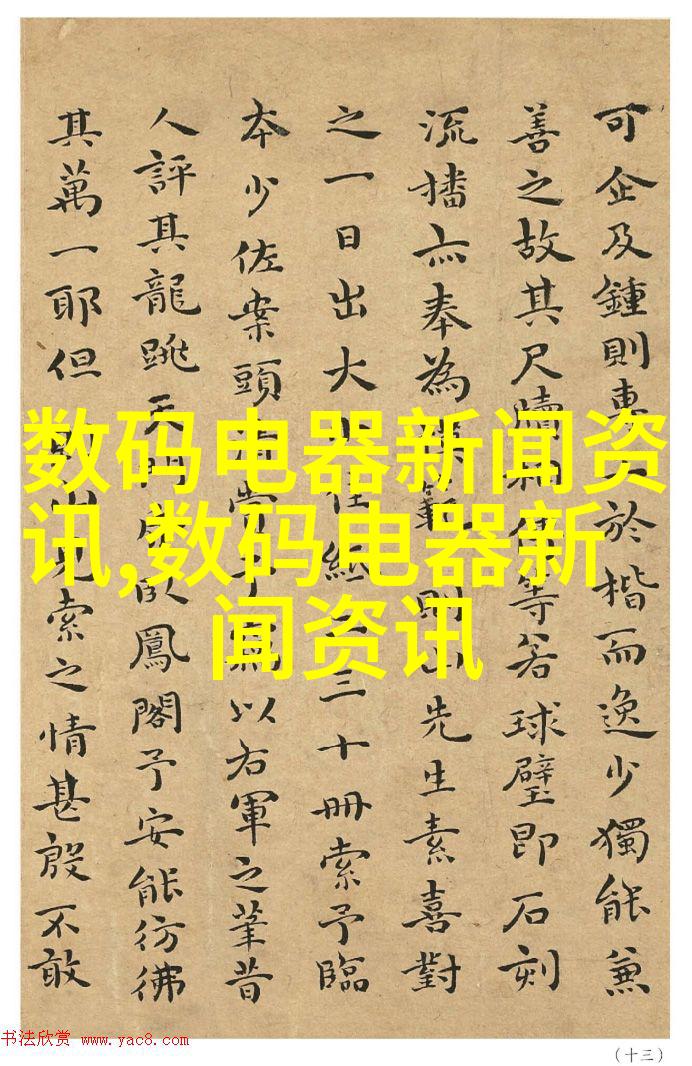 可企及鍾則專於楷而逸少獨能兼
善之故其尺牘等若球璧即石刻
流播亦奉為範則山先生素喜對
之一日出大三十冊索予臨
本少佐案頭以右軍之筆昔
人評其龍跳天門虎臥鳳閣予安能彷彿
其萬一耶但山見索之情甚殷不敢
数码电器新闻资
讯,数码电器新
闻资讯
书法欣赏 www.yac8.com
(十三)